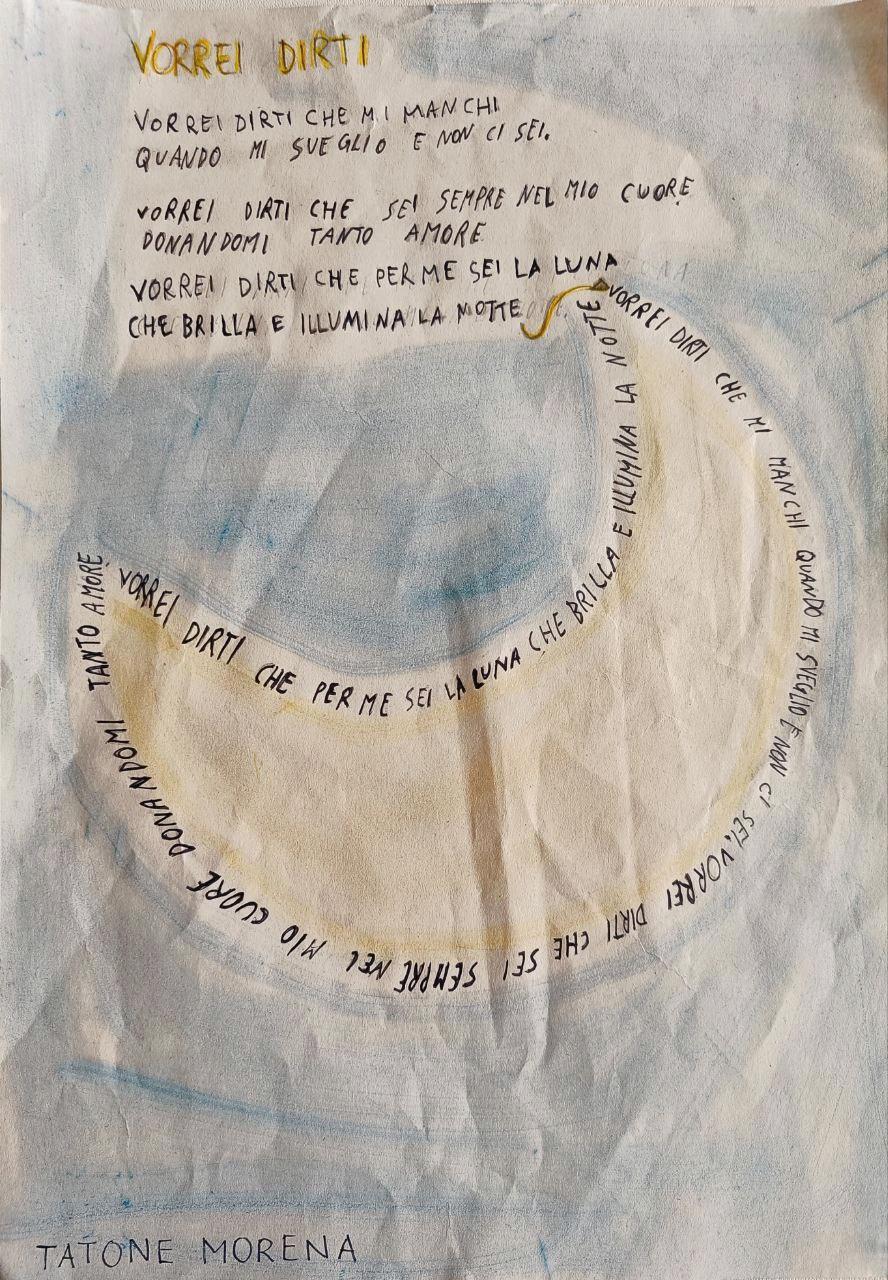 VORREI DIRTI
VORREI DIRTI CHE MI MANCHI
QUANDO MI SVEGLIO E NON CI SEI.
VORREI DIRTI CHE SEI SEMPRE NEL MIO CUORE
DONANDOMI TANTO AMORE
VORREI DIRTI CHE PER ME SEI LA LUNA
CHE BRILLA E ILLUMINA LA NOTTE
VORREI DIRTI CHE MI MANCHI QUANDO MI SVEGLIO E NON CI SEI. VORREI DIRTI CHE SEI SEMPRE NEL MIO CUORE DONANDOMI TANTO AMORE
VORREI DIRTI CHE PER ME SEI LA LUNA CHE BRILLA E ILLUMINA LA NOTTE
TATONE MORENA